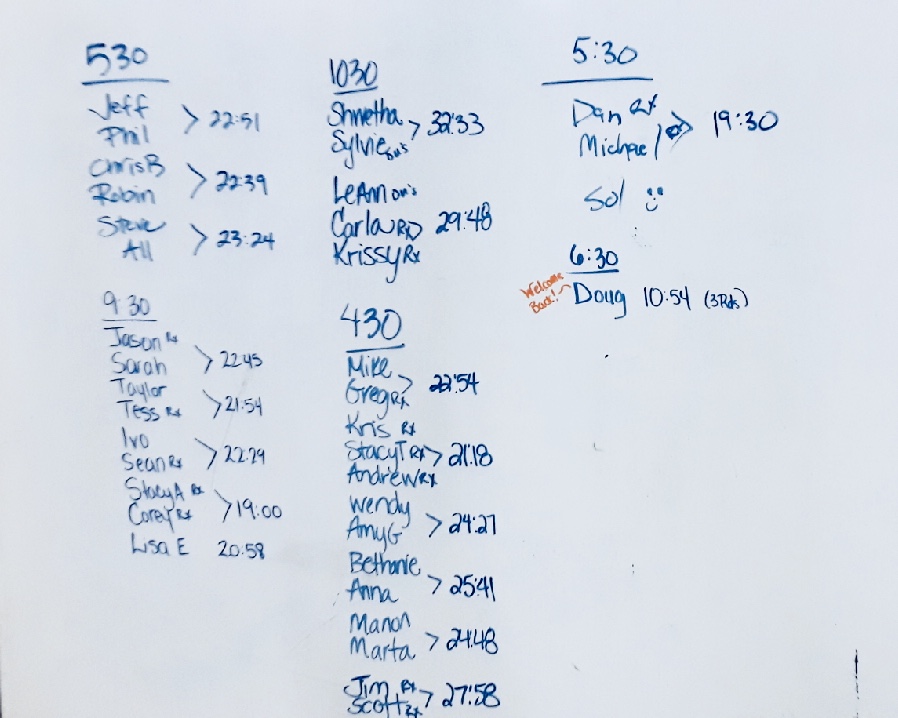 530
Jeff
Phil > 22:51
Chris B
Robin > 22:39
Steve
Ali > 23:24
9:30
Jason Rx
Sarah > 22:45
Taylor
Tess Rx > 21:54
Ivo
Sean Rx > 22:29
Stacy A Rx
Corey Rx > 19:00
Lisa E 20:58
1030
Shwetha
Sylvie > 32:33
LeAnn
Carla Rx 29:48
Krissy Rx
430
Mike
Greg Rx > 22:54
Kris Rx
Stacy T Rx > 21:18
Andrew Rx
Wendy
Amy G > 24:27
Bethanie
Anna > 25:41
Manon
Marta > 24:48
Jim Rx
Scott Rx > 27:58
5:30
Dan Rx
Michael > 19:30
Sol
6:30
Welcome
Back!
Doug 10:54 (3 Rds)